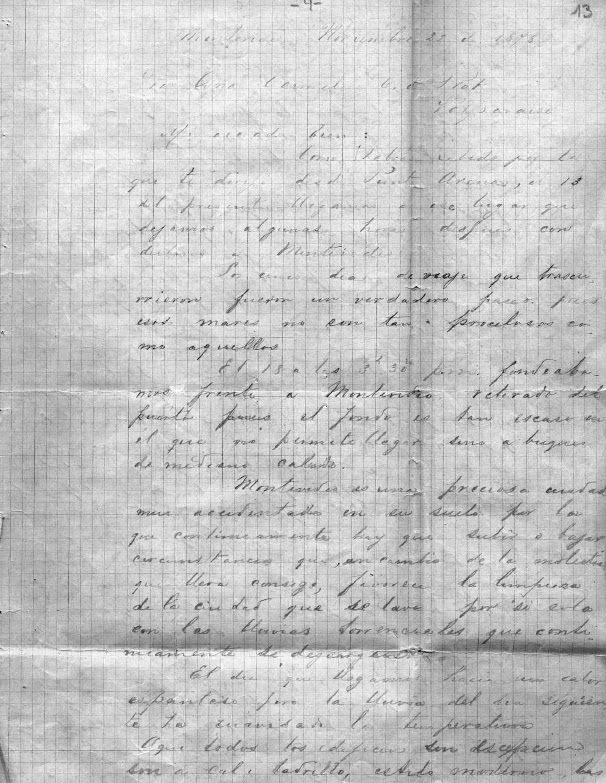 -4-
13
Montevideo Noviembre 22 de 1878
Sra Carmela C. de Prat
Valparaiso
Mi adorada bien:
Como habrás sabido por la
que te dirijí desde Punta Arenas, el 13
del presente llegamos a ese lugar que
dejamos algunas horas despues con
destino a Montevideo
Los cinco dias de viaje que trascu-
rrieron fueron un verdadero paseo pues
esos mares no son tan procelosos co-
mo aquellos
El 18 a las 3h 30m p.m. fondeaba-
mos frente a Montevideo retirado del
puerto pues el fondo es tan escaso en
él que no permite llegar sino a buques
de mediano calado.
Montevideo es una preciosa ciudad
mui accidentada en su suelo por lo
que continuamente hay que subir o bajar
circunstancia que, en cambio de la molestia
que lleva consigo, favorece la limpieza
de la ciudad que se lava por si sola
con las lluvias torrenciales que conti-
nuamente se
El dia que llegamos hacia un calor
espantoso pero la lluvia del dia siguien-
te ha suavizado la temperatura
Aqui todos los edificios sin
son a cal i ladrillo, estilo moderno